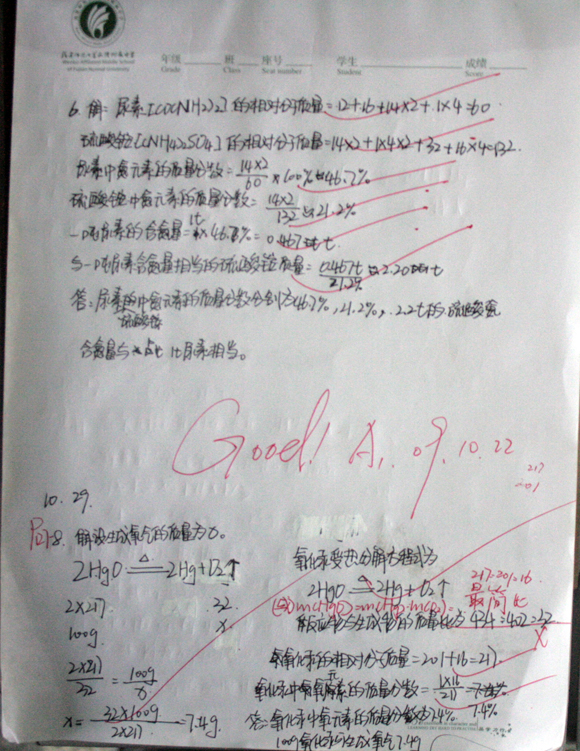 年级 班 座号 学生 成绩
Grade Class Seat number Student Score
6. 解：尿素[CO(NH2)2]的相对分子质量=12+16+14×2+1×4=60
硫酸铵[(NH4)2SO4]的相对分子质量=14×2+1×4×2+32+16×4=132
尿素中氮元素的质量分数=14×2/60×100%≈46.7%
硫酸铵中氮元素的质量分数=14×2/132≈21.2%
一吨尿素的含氮量=1t×46.7%=0.467t
与一吨尿素含氮量相当的硫酸铵质量=0.467t/21.2%≈2.20t
答：尿素 中氮元素的质量分数分别为46.7%，21.2%，2.2t的硫酸铵
硫酸铵
含氮量与 1t尿素相当。
Good! A. 09.10.22
217
201
10.29.
P 8. 解设生成氧气的质量为x。
2HgO △ 2Hg+O2↑
2×217 32
100g x
2×217/32=100g/x
x=32×100g/2×217=7.4g
氧化汞受热分解方程式为
2HgO △ 2Hg+O2↑
217:201:16
最简比
m(HgO)=m(Hg)+m(O2)
反应物与生成物的质量比为434:402:32
x
氧化汞的相对分子质量=201+16=217
氧化汞中氧元素的质量分数=1×16/217=7.4%
7.4%
答：氧化汞中氧元素的质量分数为7.4%
100g氧化汞可生成氧气7.4g